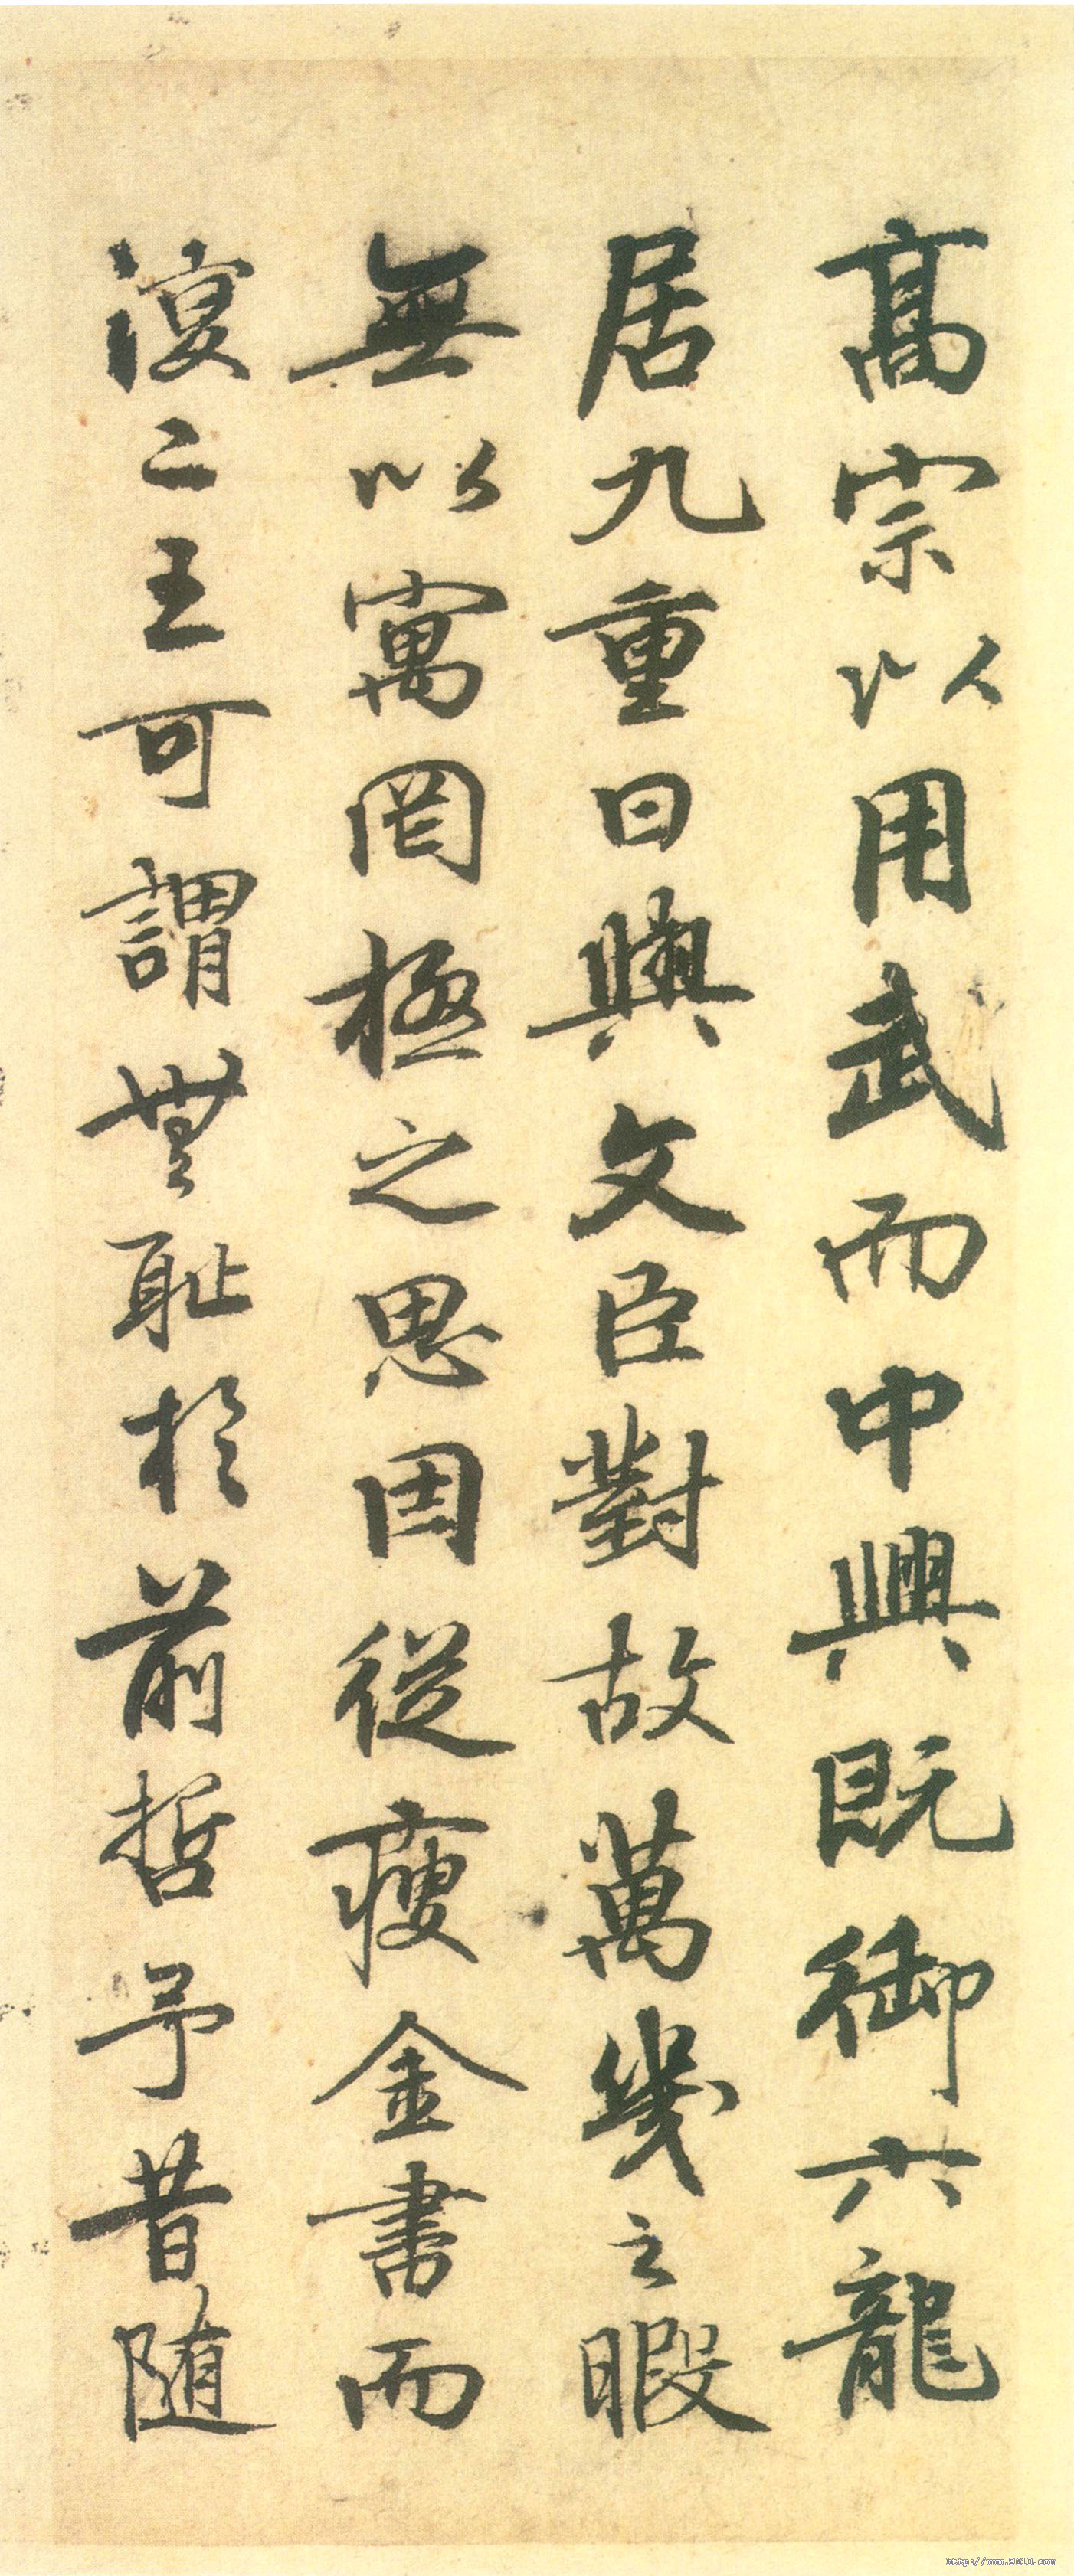 高宗以用武而中興既御六龍
居九重日與文臣對故萬幾之暇
無以寓罔極之思因從瘦金書而
復二王可謂無恥於前哲予昔随
http://www.9610.com